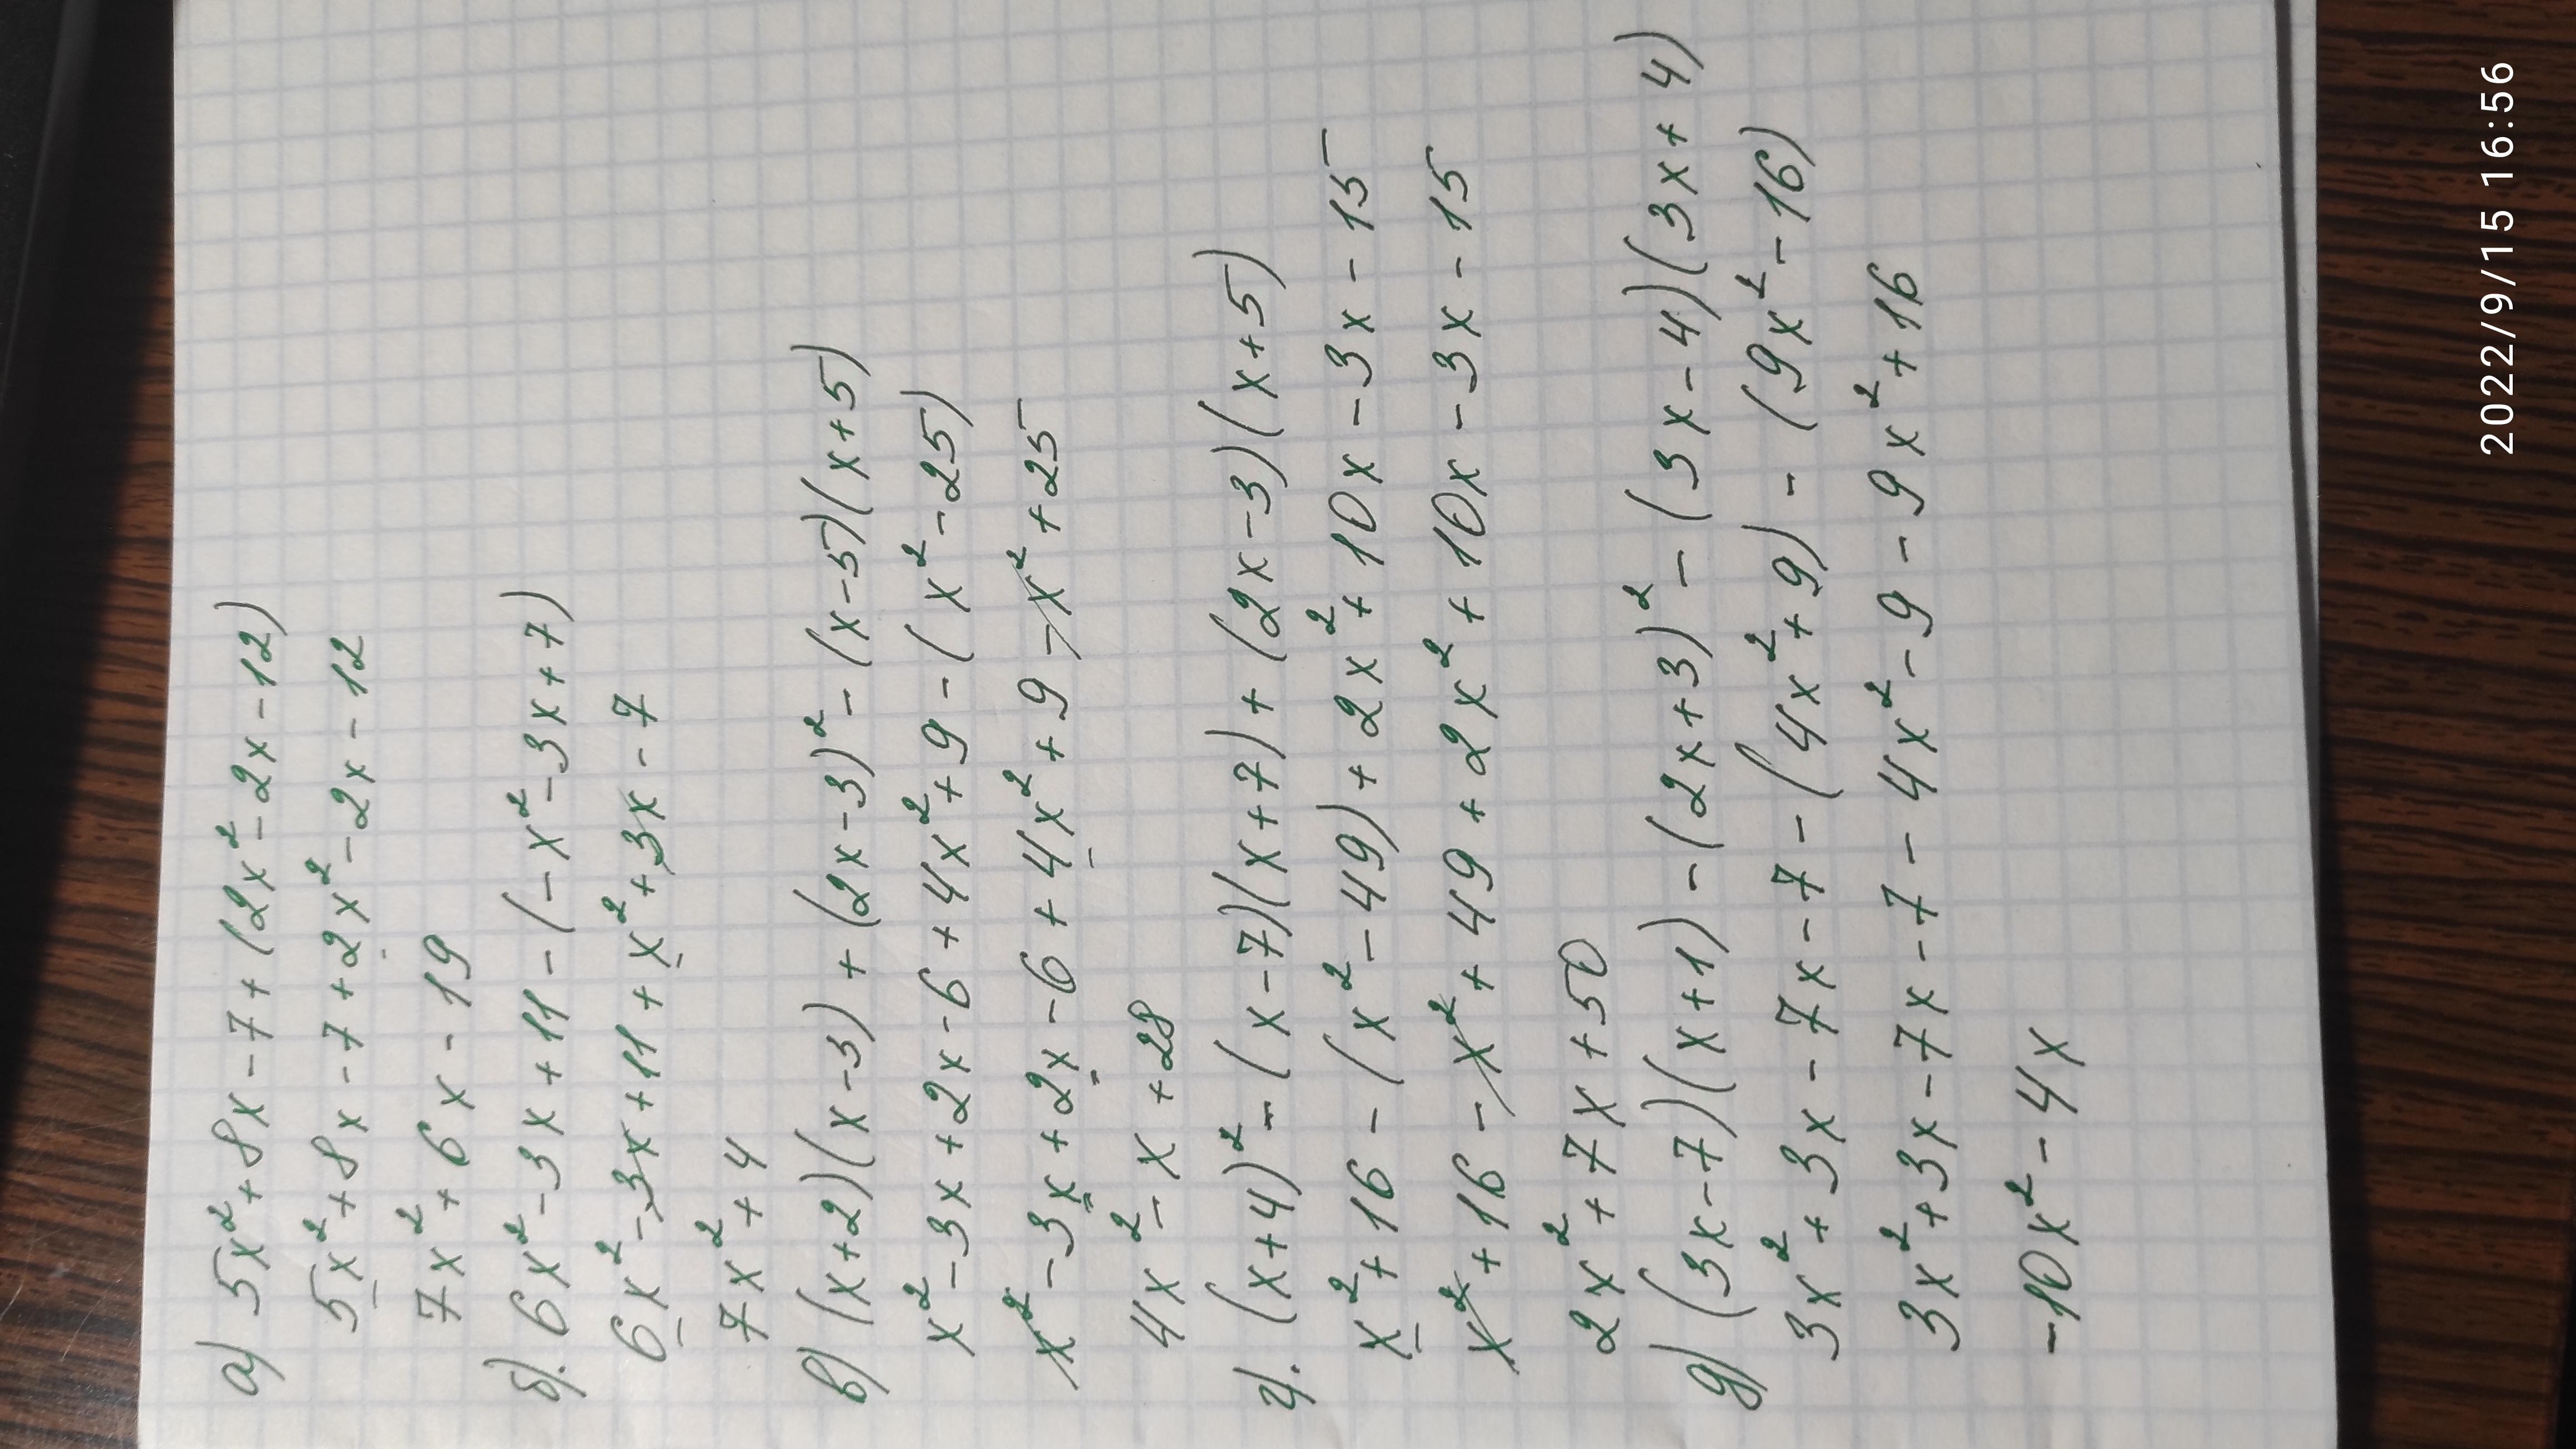 а) 5x²+8x-7+(2x²-2x-12)
5x²+8x-7+2x²-2x-12
7x²+6x-19
б). 6x²-3x+11-(-x²-3x+7)
6x²-3x+11+x²+3x-7
7x²+4
в) (x+2)(x-3)+(2x-3)²-(x-5)(x+5)
x²-3x+2x-6+4x²+9-(x²-25)
x²-3x+2x-6+4x²+9-x²+25
4x²-x+28
г). (x+4)²-(x-7)(x+7)+(2x-3)(x+5)
x²+16-(x²-49)+2x²+10x-3x-15
x²+16-x²+49+2x²+10x-3x-15
2x²+7x+50
д) (3x-7)(x+1)-(2x+3)²-(3x-4)(3x+4)
3x²+3x-7x-7-(4x²+9)-(9x²-16)
3x²+3x-7x-7-4x²-9-9x²+16
-10x²-4x
2022/9/15 16:56